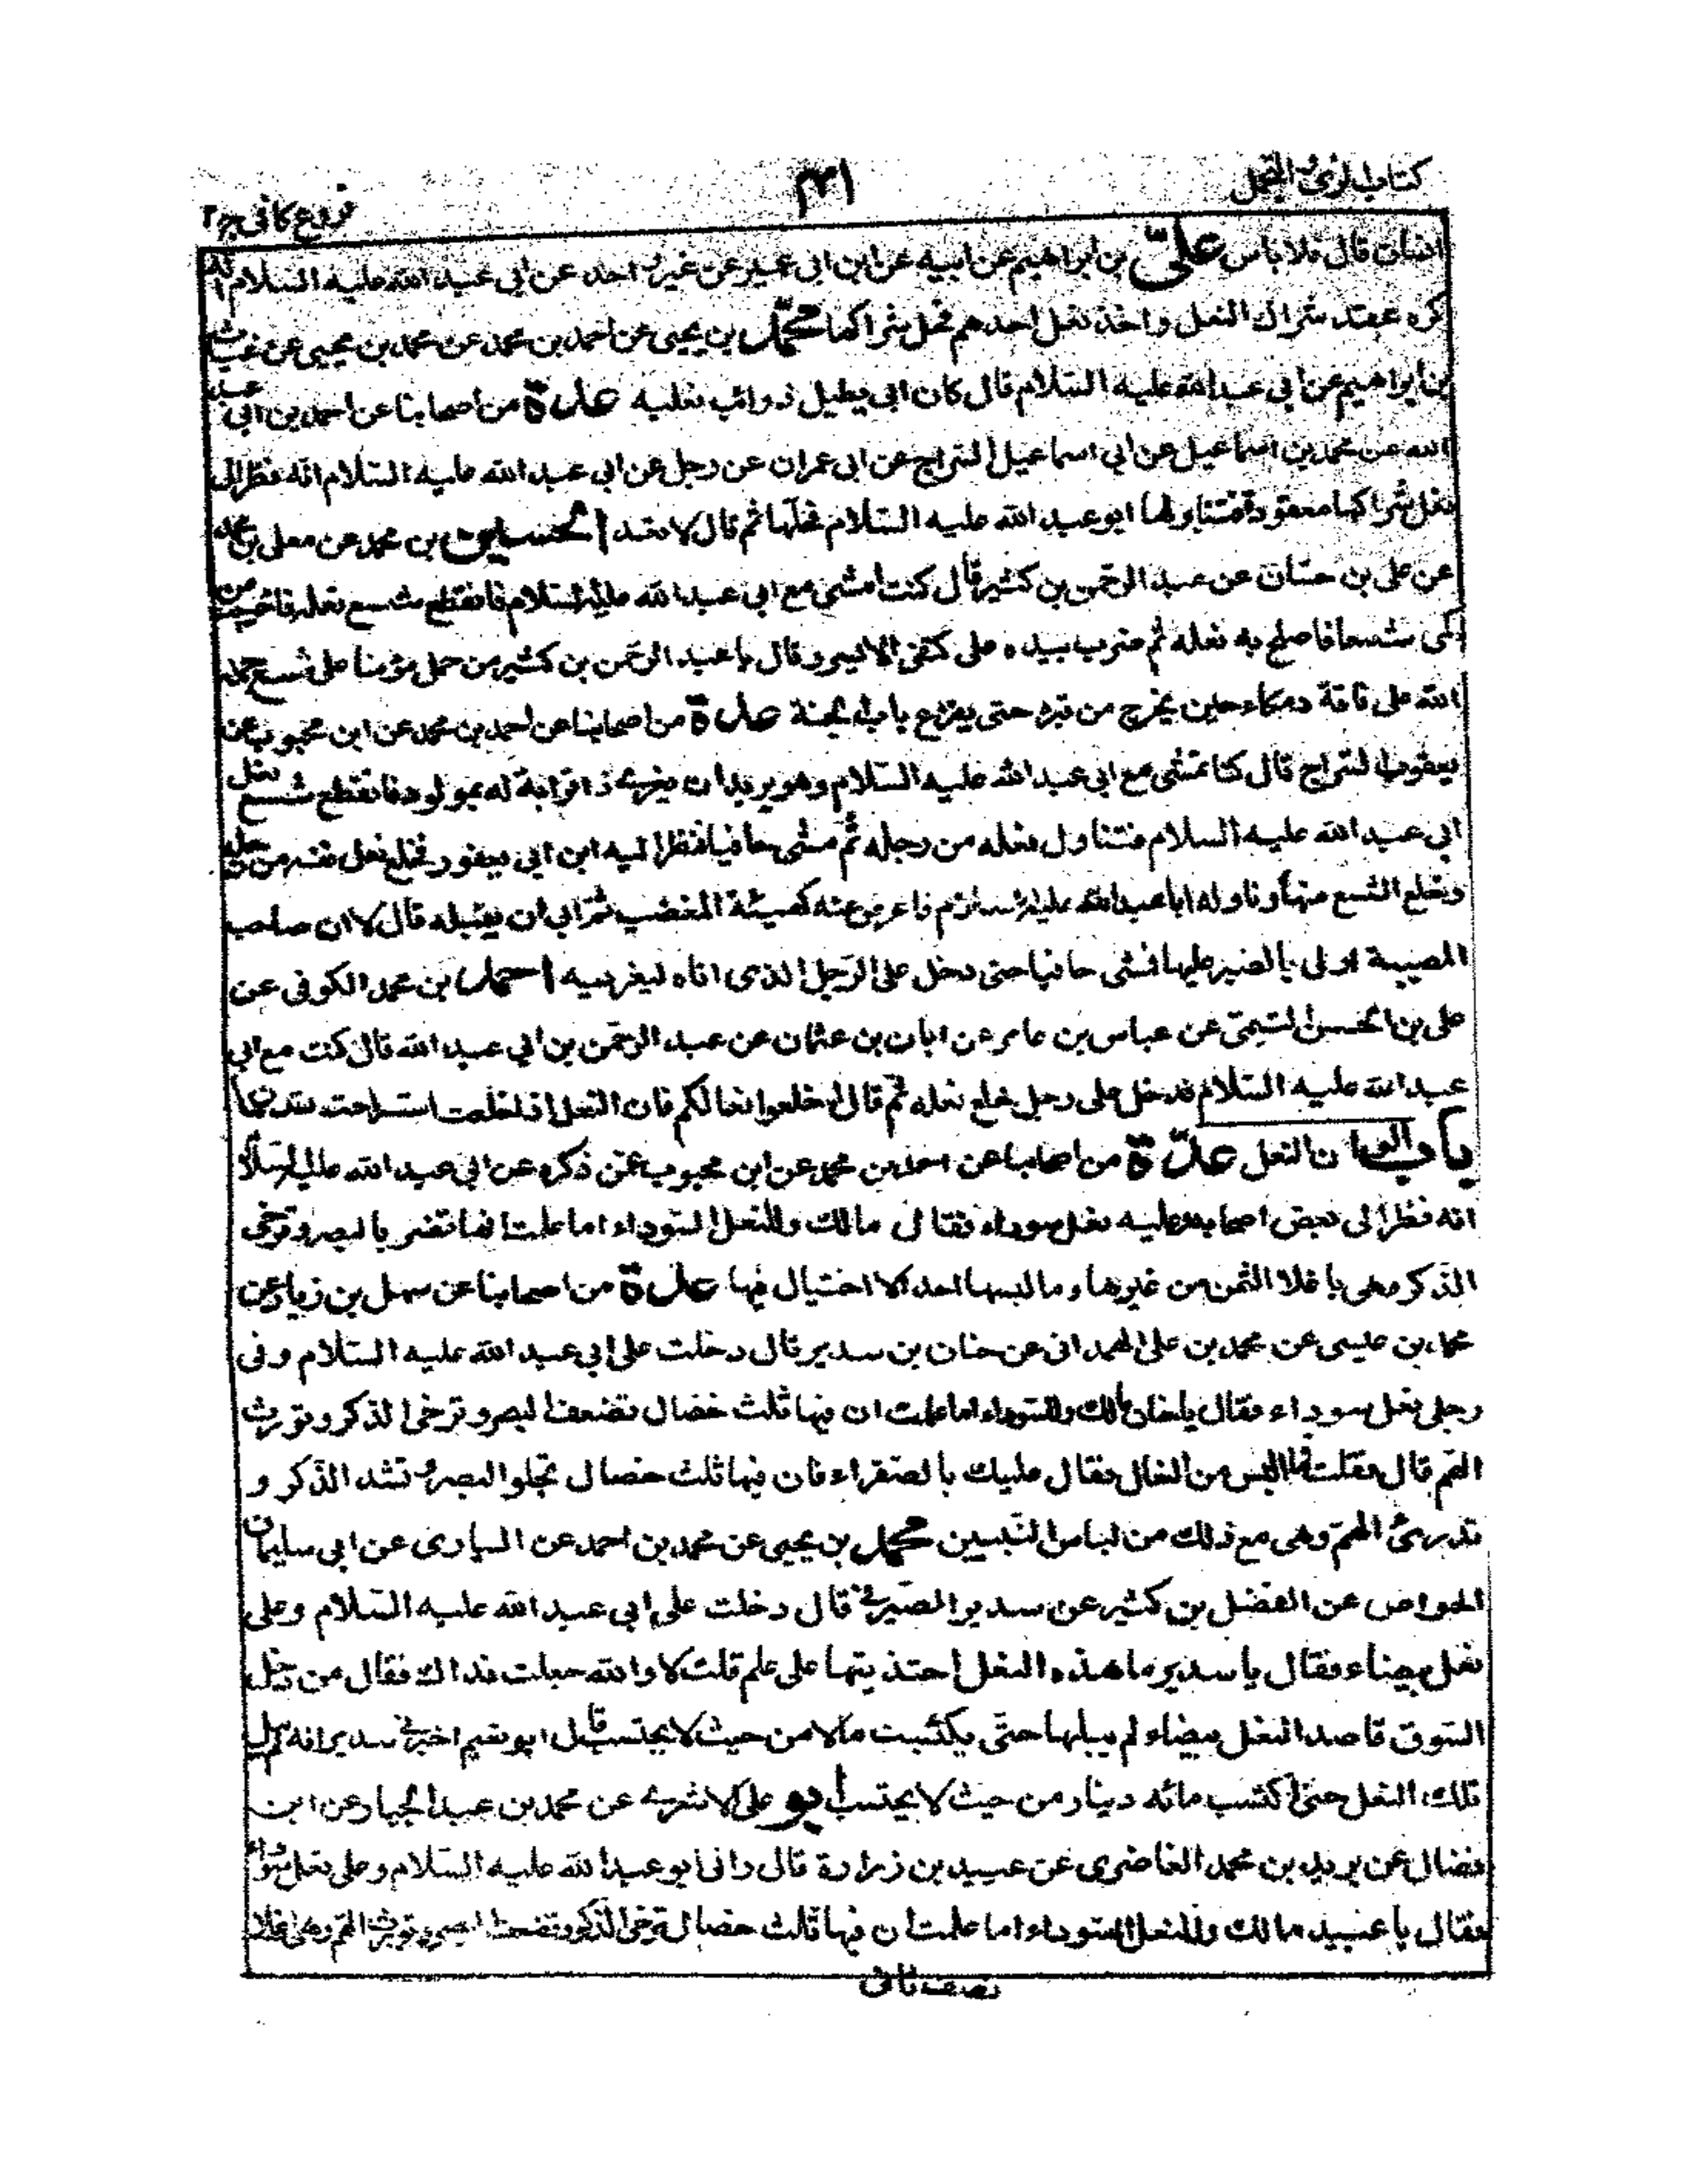 كتاب الزى و التجمل
فروع كافى ج ٢
قال فلا باس علىّ بن ابراهيم عن ابيه عن ابن ابى عمير عن غير احد عن ابى عبد الله عليه السلام انه
كره عقد شراك النعل و اخذ نعل احدهم فحل شراكها محمّد بن يحيى عن احمد بن محمد عن محمد بن يحيى عن غياث
بن ابراهيم عن ابى عبد الله عليه السّلام قال كان ابى يطيل ذوائب نعليه عدة من اصحابنا عن احمد بن ابى عبد
الله عن محمد بن اسماعيل عن ابى اسماعيل السّراج عن ابى عمران عن رجل عن ابى عبد الله عليه السّلام انّه نظر الى
نعل شراكها معقودة فتناولها ابو عبد الله عليه السّلام فحلّها ثم قال لا تعقد الحسين بن محمد عن معلى بن محمد
عن على بن حسّان عن عبد الرحمن بن كثير قال كنت امشى مع ابى عبد الله عليه السلام فانقطع شسع نعله فاخرجت من
كمى شسعا فاصلح به نعله ثم ضرب بيده على كتفى الايسر و قال يا عبد الرحمن بن كثير من حمل مؤمنا على شسع حمله
الله على ناقة دمكاء حين يخرج من قبره حتى يقرع باب الجنة عدة من اصحابنا عن احمد بن محمد عن ابن محبوب عن
يعقوب السّراج قال كنا نمشى مع ابى عبد الله عليه السّلام و هو يريد ان يعزى ذا قرابة له بمولود فانقطع شسع نعل
ابى عبد الله عليه السلام فتناول نعله من رجله ثم مشى حافيا فنظر اليه ابن ابى يعفور فخلع نعل نفسه من رجله
و خلع الشسع منها و ناوله ابا عبد الله عليه السلام فاعرض عنه كهيئة المغضب ثم ابى ان يقبله قال لا ان صاحب
المصيبة اولى بالصبر عليها فمشى حافيا حتى دخل على الرّجل الذى اتاه ليعزيه احمد بن محمد الكوفى عن
على بن الحسن التيمىّ عن عباس بن عامر عن ابان بن عثمان عن عبد الرّحمن بن ابى عبد الله قال كنت مع ابى
عبد الله عليه السّلام فدخل على رجل فخلع نعله ثمّ قال اخلعوا نعالكم فان النعل اذا خلعت استراحت القدمان
باب الوان النعل عدّة من اصحابنا عن احمد بن محمد عن ابن محبوب عمّن ذكره عن ابى عبد الله عليه السلام
انه نظر الى بعض اصحابه و عليه نعل سوداء فقال مالك و للنعل السّوداء اما علمت انها تضر بالبصر و ترخى
الذّكر و هى باغلا الثمن من غيرها و ما لبسها احد الا اختال فيها عدة من اصحابنا عن سهل بن زياد عن
محمد بن عيسى عن محمد بن على الهمدانى عن حنان بن سدير قال دخلت على ابى عبد الله عليه السّلام و فى
رجلى نعل سوداء فقال يا حنان مالك و للسّوداء اما علمت ان فيها ثلث خصال تضعف البصر و ترخى الذكر و تورث
الهّم قال فقلت فما البس من النعال فقال عليك بالصّفراء فان فيها ثلث خصال تجلو البصر و تشد الذّكر و
تدرئ الهمّ و هى مع ذلك من لباس النّبيين محمد بن يحيى عن محمد بن احمد عن السيارى عن ابى سليمان
الخواص عن الفضل بن كثير عن سدير الصّيرفى قال دخلت على ابى عبد الله عليه السّلام و على
نعل بيضاء فقال يا سدير ما هذه النعل احتذيتها على علم قلت لا و الله جعلت فداك فقال من دخل
السّوق قاصدا النعل بيضاء لم يبلها حتّى يكتسب مالا من حيث لا يحتسب قال ابو نعيم اخبرنى سدير انه لم يبل
تلك النعل حتّى اكتسب مائه دينار من حيث لا يحتسب ابو على الاشعرى عن محمد بن عبد الجبار عن ابن
فضال عن بريد بن محمد الغاضرى عن عبيد بن زرارة قال رانى ابو عبد الله عليه السّلام و على نعل سوداء
فقال يا عبيد مالك و للنعل السّوداء اما علمت ان فيها ثلث خصال ترخى الذّكر و تضعف البصر و تورث الهّم و هى اغلا
نصف ثانى